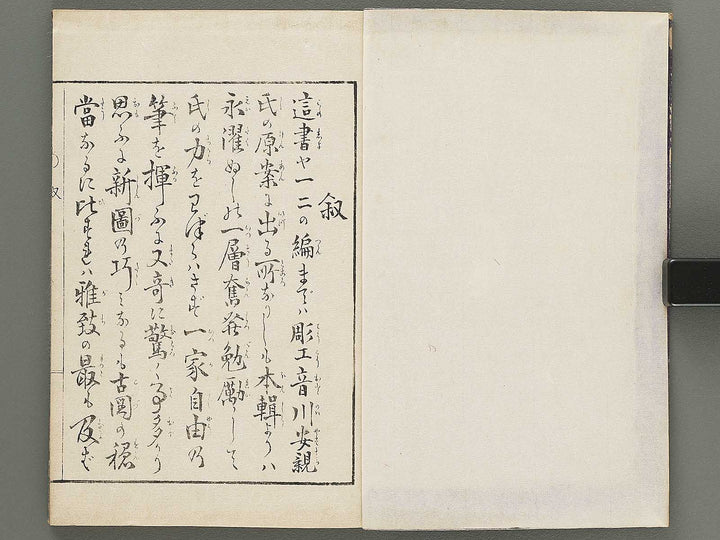 叙
這書や一二の編までハ彫工音川安親
氏の原案に出る所なりしも本輯よりハ
永濯ぬしの一層奮発勉励して
氏の力をわづらハさず一家自由の
筆を揮ふに又奇に驚く事多かり
思ふに新圖の巧ミなるも古図の穏
當なるに比すれバ雅致の最も及ばず